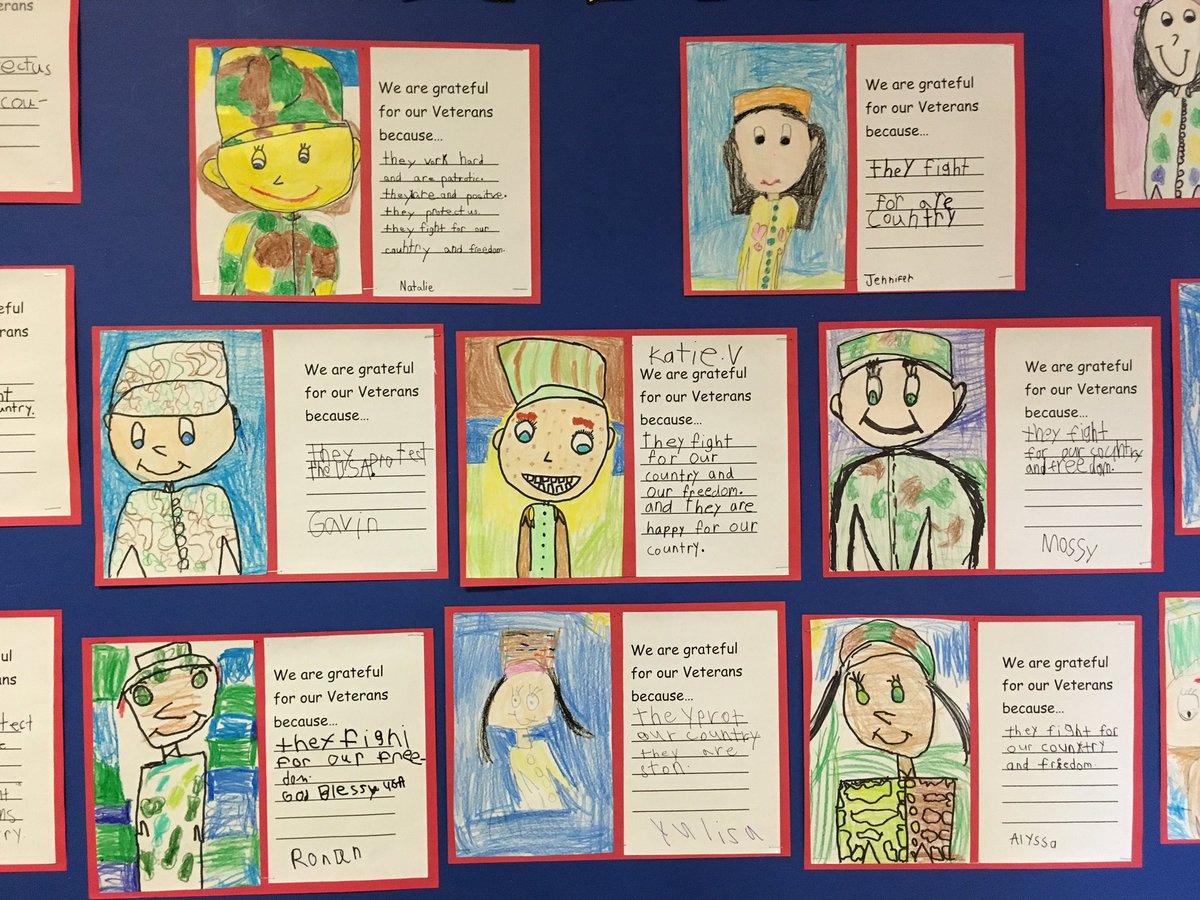 terans
ectus
cou-
We are grateful
for our Veterans
because...
they work hard
and are patrotic.
they are and positve.
they protect us.
they fight for our
country and freedom.
Natalie
We are grateful
for our Veterans
because...
they fight
for are
Country
Jennifer
eful
erans
nt
untry.
We are grateful
for our Veterans
because...
they protect
the USA.
Gavin
Katie.V
We are grateful
for our Veterans
because...
they fight
for our
country and
our freedom.
and they are
happy for our
country.
We are grateful
for our Veterans
because...
they fight
for our country
and freedom.
Mossy
ful
rans
otect
nt
ms
ntry.
We are grateful
for our Veterans
because...
they fight
for our free-
dom.
God Blessy USA
Ronan
We are grateful
for our Veterans
because...
they prot
our country
they are
ston.
Yulisa
We are grateful
for our Veterans
because...
they fight for
our counxtry
and friedom.
Alyssa